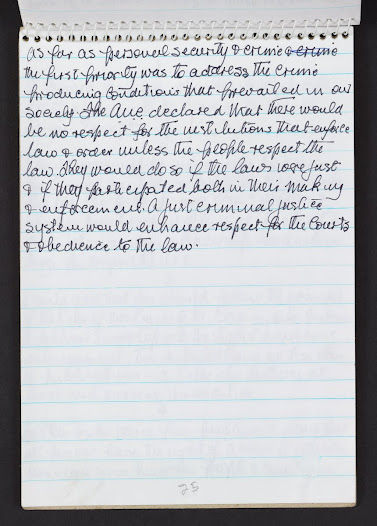 as far as personal security & crime & crime
the first priority was to address the crime
producing conditions that prevailed in our
society. The ANC declared that there would
be no respect for the institutions that enforce
law & order unless the people respect the
law. They would do so if the laws were just
& if they participated both in their making
& enforcement. A just criminal justice
system would enhance respect for the Courts
& obedience to the law.
25